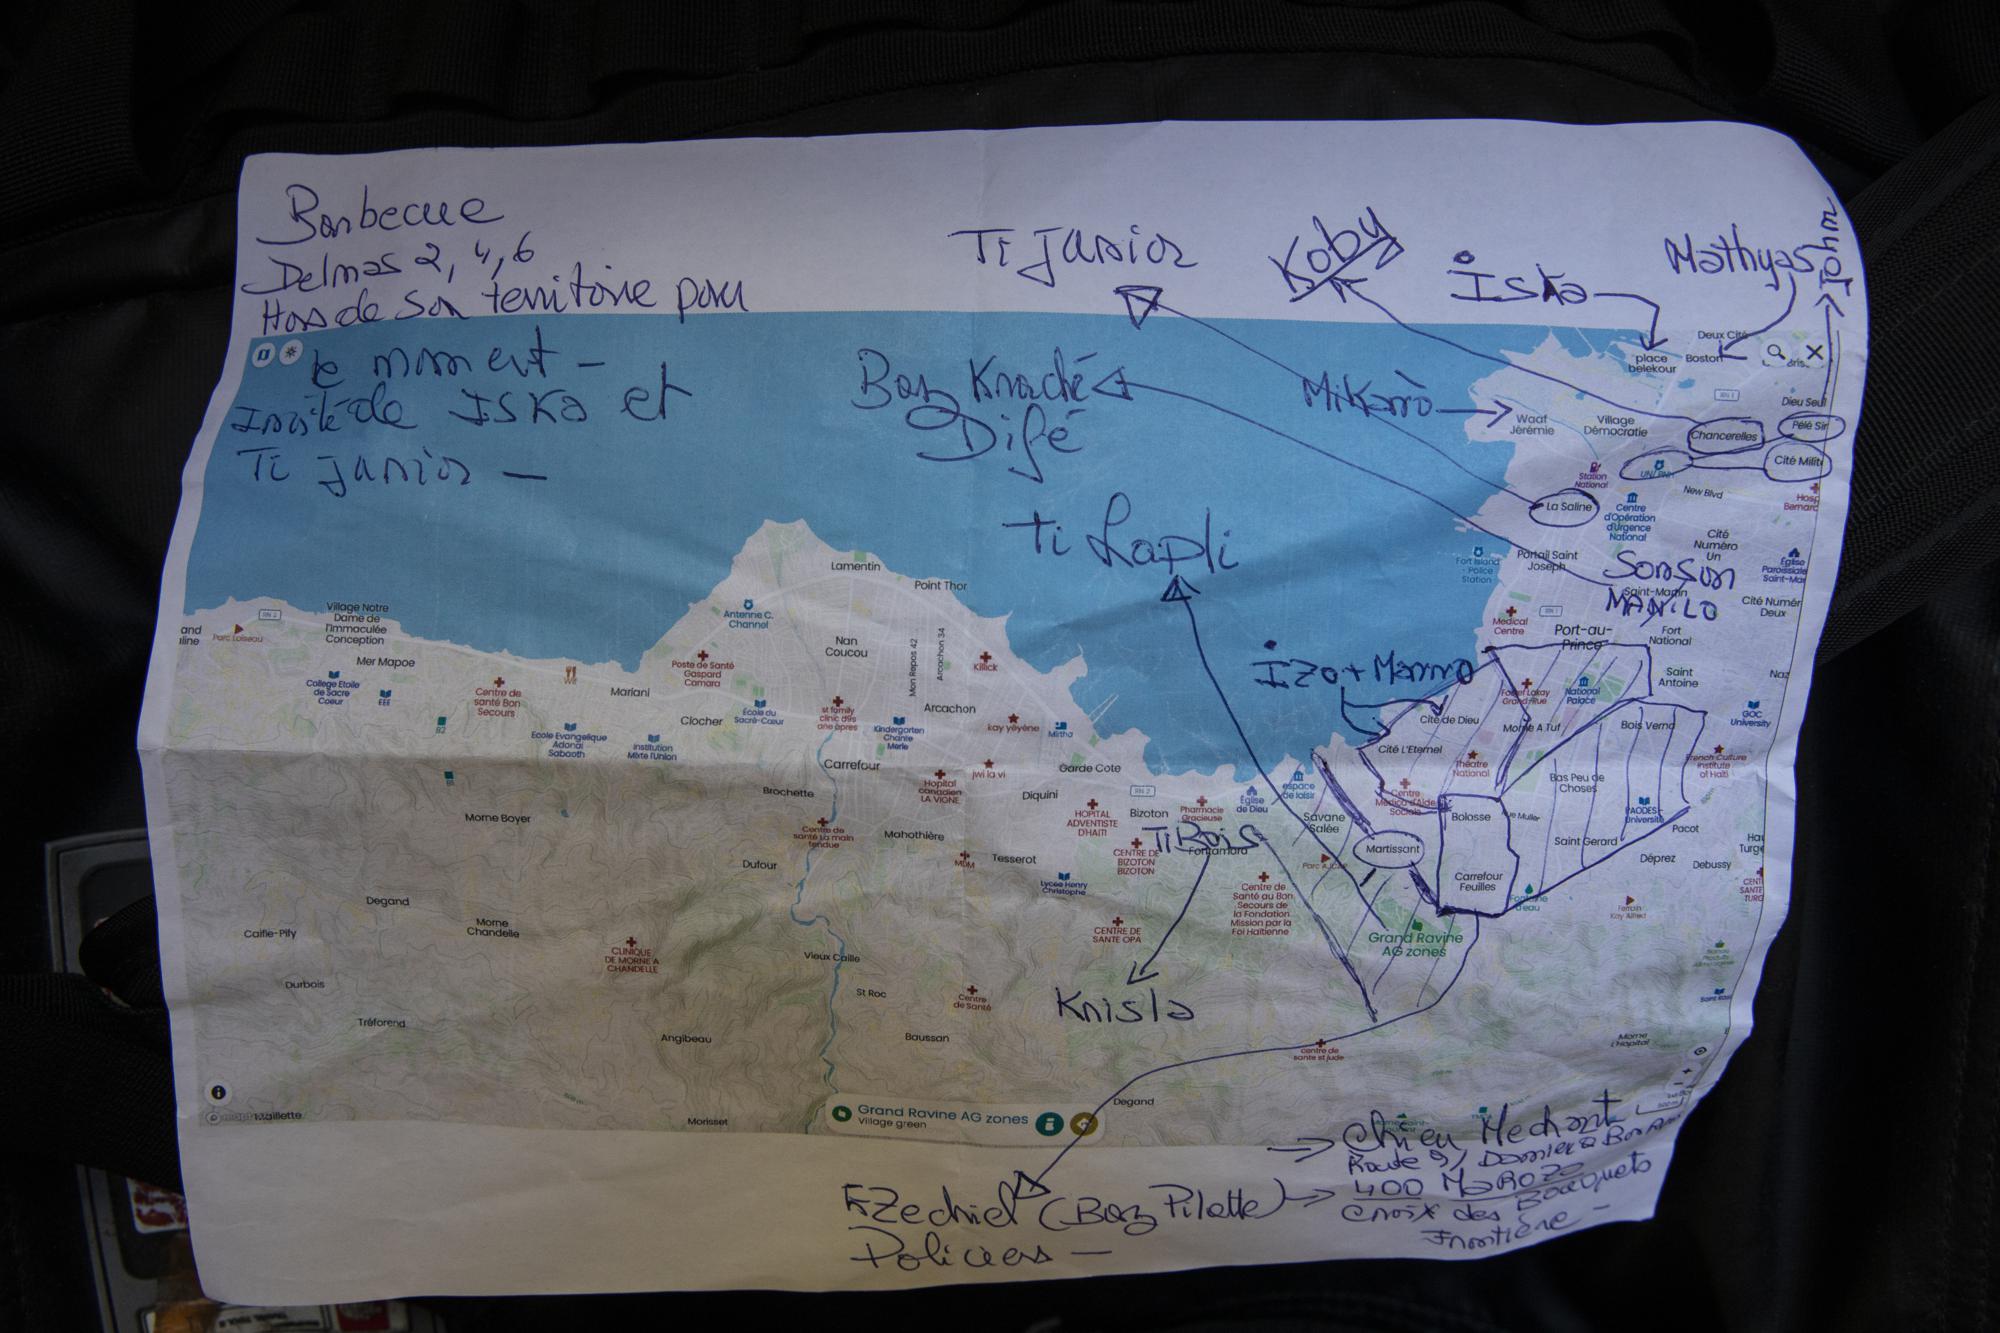 Barbecue
Delmas 2, 4, 6
Hors de son territoire pour
le moment –
Invité de Iska et
Ti Junior –
Ti Junior
Koby
Iska
Mathyas
John
Baz Kraché
Difé
Mikanò
Ti Lapli
Sonson
MANILO
Izo + Manno
Ti Bois
Krisla
Ezechiel (Baz Pilatte)
Policiers –
Chien Mechant
Route 9,
400 Mawozo
Croix des Bouquets
Frontière –
Deux Cité
place
belekour
Boston
RN 1
Dieu Seul
Waaf
Jérémie
Village
Démocratie
Chancerelles
Pélé Sim
Cité Milit
Station
National
UN/PNH
New Blvd
Hosp
Bernard
La Saline
Centre
d'Opération
d'Urgence
National
Cité
Numéro
Un
Fort Island
- Police
Station
Portail Saint
Joseph
Saint-Martin
Église
Paroissiale
Saint-Mar
Cité Numér
Deux
Medical
Centre
RN 1
Port-au-
Prince
Fort
National
Saint
Antoine
Naz
National
Palace
GOC
University
Cité de Dieu
Morne A Tuf
Bois Verna
Cité L'Eternel
Théatre
National
French Culture
Institute
of Haiti
Bas Peu de
Choses
Centre
Médico d'Aide
Sociale
Bolosse
Rue Muller
PAODES
Université
Pacot
Saint Gerard
Déprez
Debussy
Martissant
Carrefour
Feuilles
Fontaine
d'eau
Terrain
Kay Alfred
Grand Ravine
AG zones
Savane
Salée
espace
de loisir
Église
de Dieu
Pharmacie
Gracieuse
Fontamara
Bizoton
RN 2
CENTRE DE
BIZOTON
BIZOTON
Centre de
Santé au Bon
Secours de
la Fondation
Mission par la
Foi Haïtienne
CENTRE DE
SANTE OPA
HOPITAL
ADVENTISTE
D'HAITI
Garde Cote
Diquini
Tesserot
Lycée Henry
Christophe
Lamentin
Point Thor
Antenne C.
Channel
Nan
Coucou
Mon Repos 42
Arcachon 34
Killick
Arcachon
kay yéyéne
Mirtha
jwi la vi
Hopital
canadien
LA VIGNE
Kindergarten
Chante
Merle
st family
clinic d'rs
ane âpres
Carrefour
Brochette
Mahothière
MDM
Centre de
santé La main
tendue
Dufour
École du
Sacré-Coeur
Clocher
Poste de Santé
Gaspard
Camara
Mariani
Institution
Mixte l'Union
Ecole Evangelique
Adonai
Sabaoth
Centre de
santé Bon
Secours
Mer Mapoe
Village Notre
Dame de
l'Immaculée
Conception
RN 2
Parc Loiseau
College Etoile
de Sacre
Coeur
EEE
Morne Boyer
Degand
Morne
Chandelle
CLINIQUE
DE MORNE A
CHANDELLE
Caifie-Pify
Durbois
Tréforend
Angibeau
Vieux Caille
St Roc
Centre
de Santé
Baussan
centre de
sante st jude
Morne
L'Hopital
Degand
Morisset
Maillette
Grand Ravine AG zones
Village green